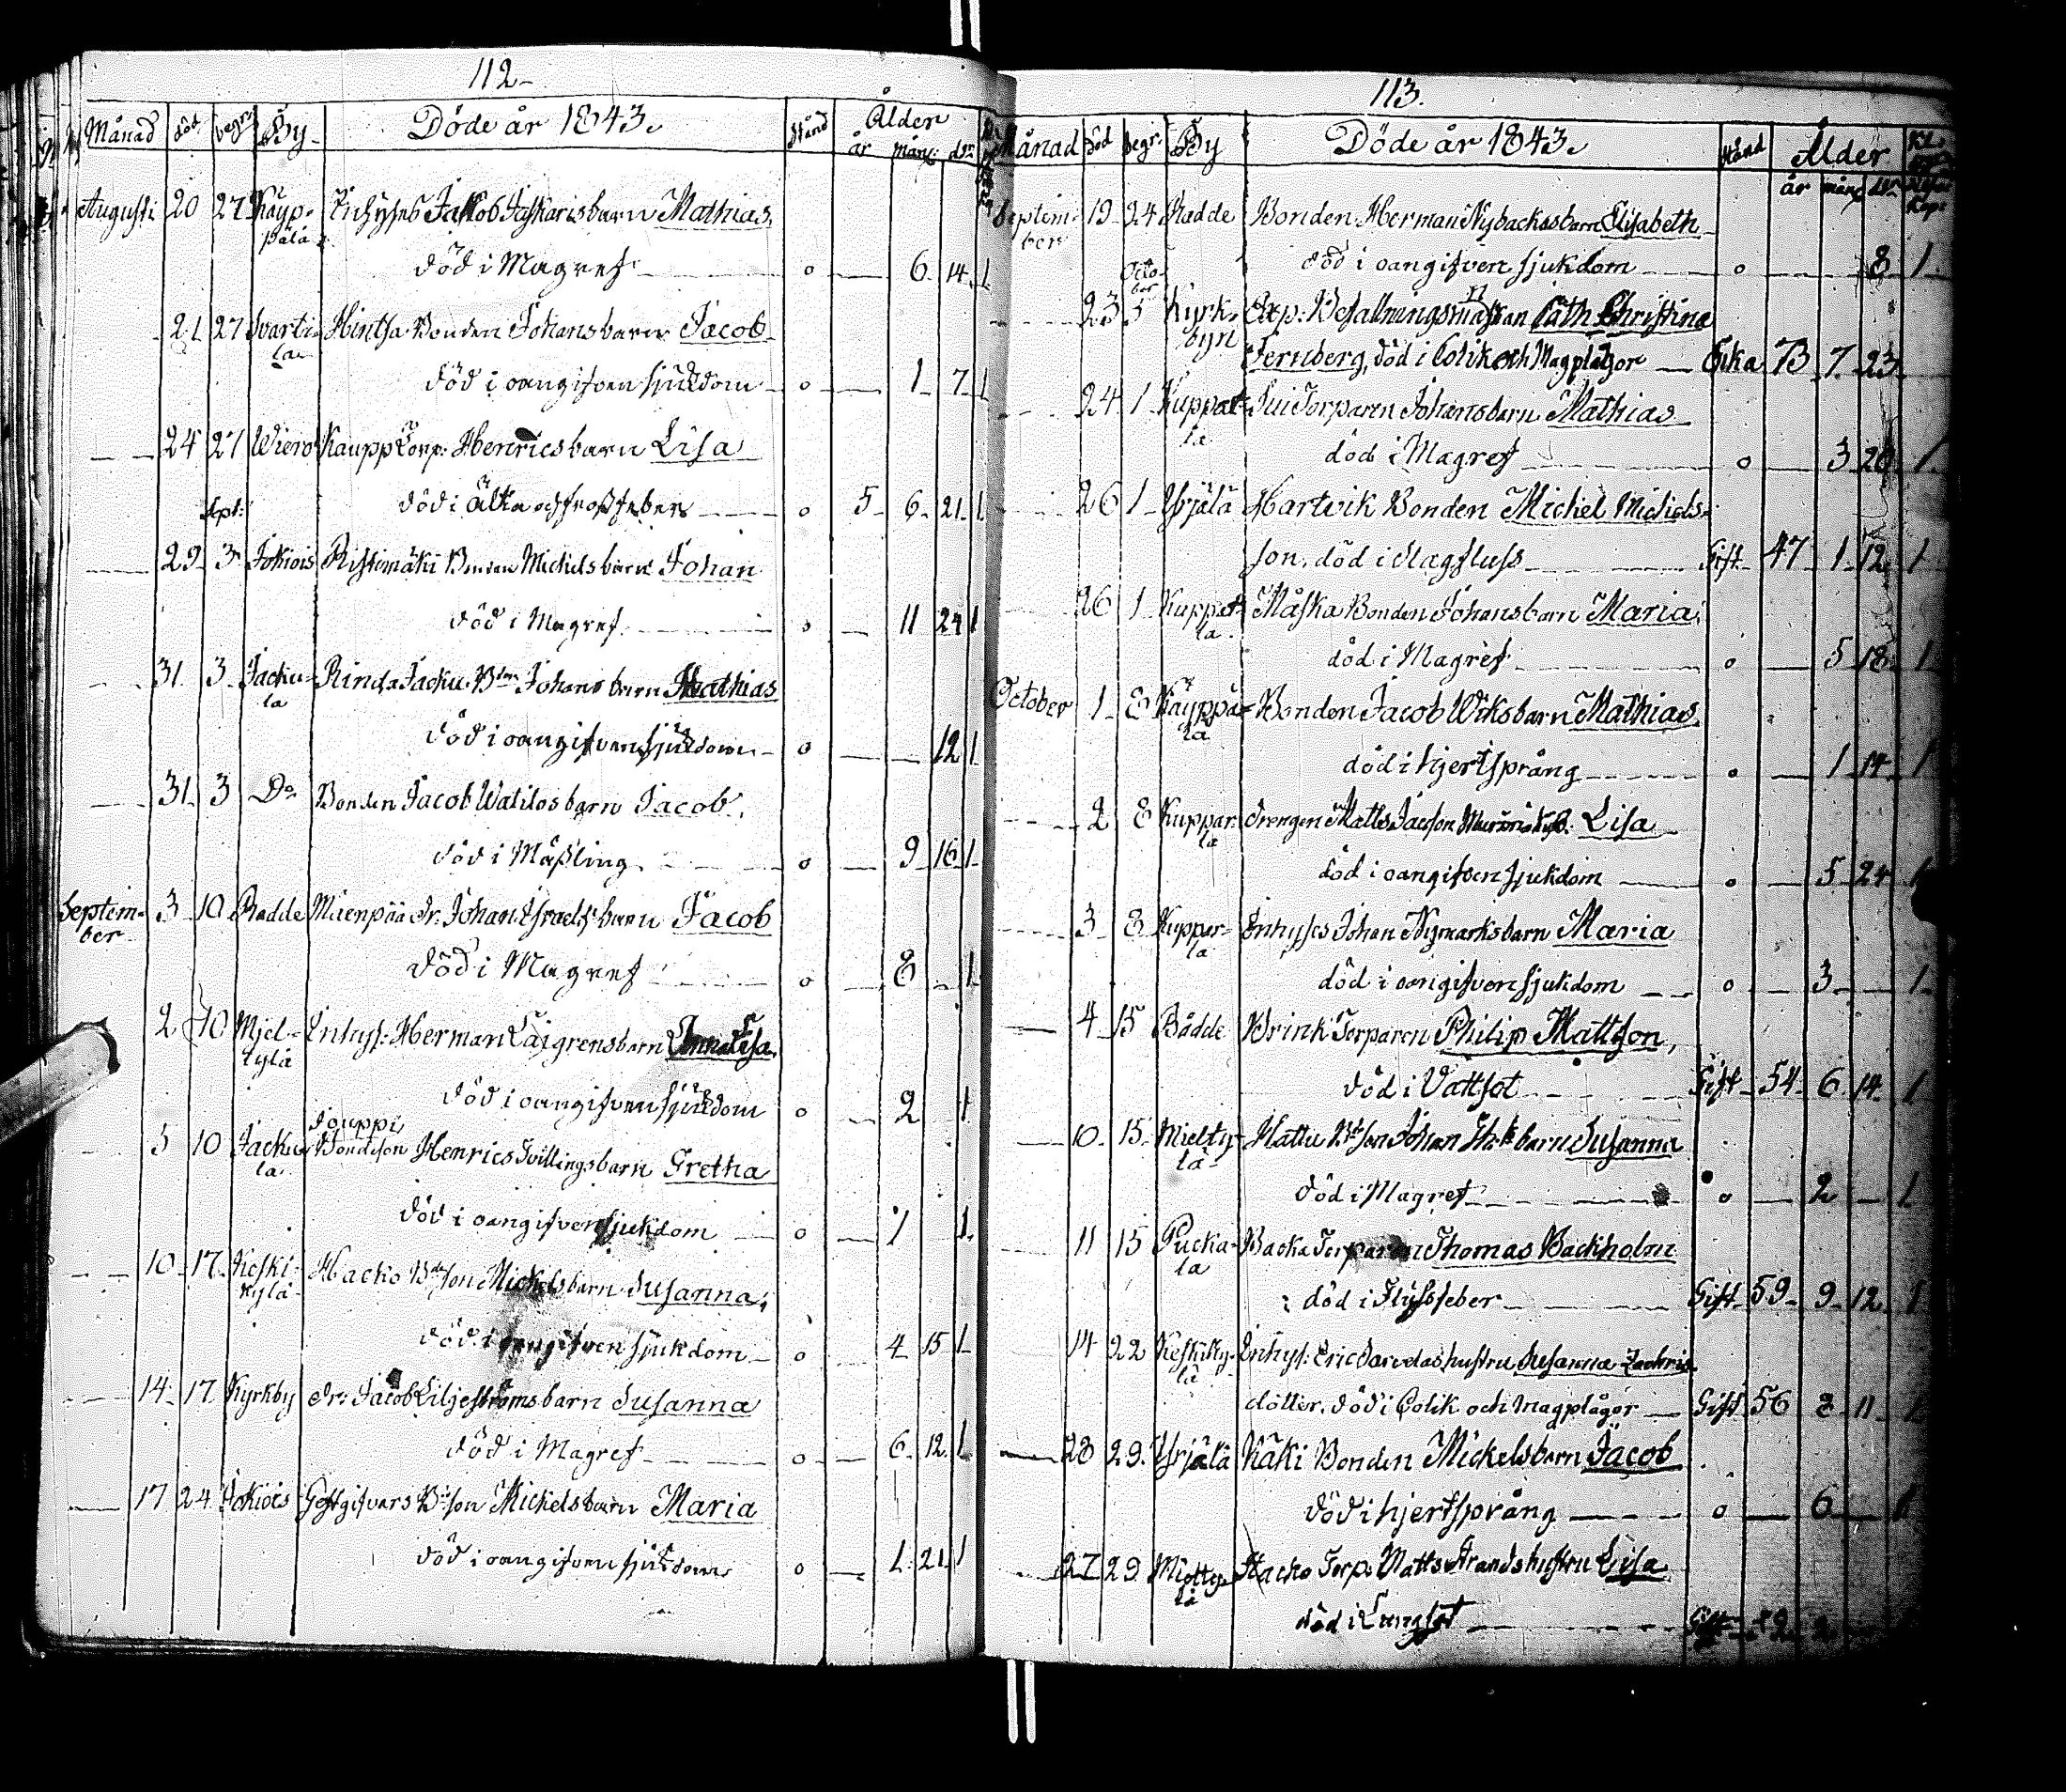 112
Månad död. begr. By Döde år 1843. Stånd Ålder
år mån: dar
Augusti 20 27 Käyp- Inhyses Jakob barn Mathias,
pälä
död i Magref o 6 14 1
21 27 Svarti- Hintsa Bonden Johans barn Jacob
la
död i oangifven sjukdom o 1 7 1
24 27 Wiero Kaupp Torp: Henrics barn Lisa
död i Älta och frossfeber o 5 6 21 1
Sept:
29 3 Jokiois Ristimäki Bonden Mickels barn Johan
död i Magref o 11 24 1
31. 3 Jacku- Rinda Jacku Bdn Johans barn Mathias
la
död i oangifven sjukdom o 12 1
31 3 Do Bonden Jacob Watilos barn Jacob.
död i Mässling o 9 16 1
Septem- 3 10 Radde Mäenpää Dr. Johan Israels barn Jacob
ber
död i Magref o 8 1
2 10 Mjel- Inhys: Herman barn Anna Lisa.
tylä
död i oangifven sjukdom o 2 1
Jouppi
5 10 Jacku- Bondeson Henrics Tvillingsbarn Gretha
la
död i oangifven sjukdom o 1 1
10 17 Keski- Hacko Bdeson Mickels barn Susanna,
kylä
död i oangifven sjukdom o 4 15 1
14 17 Kyrkby Dr: Jacob Liljeströms barn Susanna
död i Magref o 6 12 1
17 24 Jokiois Gästgifvars Bdson Mickels barn Maria
död i oangifven sjukdom o 1 21 1
113.
Månad död begr: By Döde år 1843. Stånd Ålder
år mån dar
Septem- 19 24 Radde Bonden Herman Nybacks barn Elisabeth
ber
död i oangifven sjukdom o 8 1
Octo-
ber
23 5 Kyrk- Exp: Befallningsmanskan Cath Christina
byn
Fernberg, död i Colik och Magplågor Enka 73 7 23
24 1 Kuppar- Torparen Johans barn Mathias
la
död i Magref o 3 28 1
26 1 Yrjälä Hartvik Bonden Michel Michels-
son, död i Slagfluss Gift 47 1 12 1
26 1 Kuppar- Måska Bonden Johans barn Maria
la
död i Magref o 5 18 1
October 1 8 Käyppä- Bonden Jacob Wiks barn Mathias
lä
död i hjertsprång o 1 14 1
2 8 Kuppar- Drengen Matts Jacsson Lisa
la
död i oangifven sjukdom o 5 24 1
3 8 Kuppar- Inhyses Johan Nymarks barn Maria
la
död i oangifven sjukdom o 3 1
4 15 Rådde Brink Torparen Philip Mattsson,
död i Vattsot Gift 54 6 14 1
10 15 Mielty- Hattu Bdson Johan barn Susanna
lä
död i Magref o 2 1
11 15 Pucka- Backa Torparen Thomas Backholm
la
död i Flyssfeber Gift 59 9 12 1
14 22 Keskiky- Inhys: Eric hustru Susanna Zachris-
lä
dotter, död i Colik och Magplågor Gift 56 8 11 1
28 29 Yrjälä Käki Bonden Mickels barn Jacob
död i hjertsprång o 6 1
27 29 Mielty- Hacko Torp: Matts Strands hustru Lisa
lä
död i Lungsot Gift 42 2